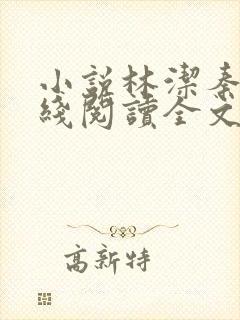 小説林潔秦
綫閱讀全文
高新特